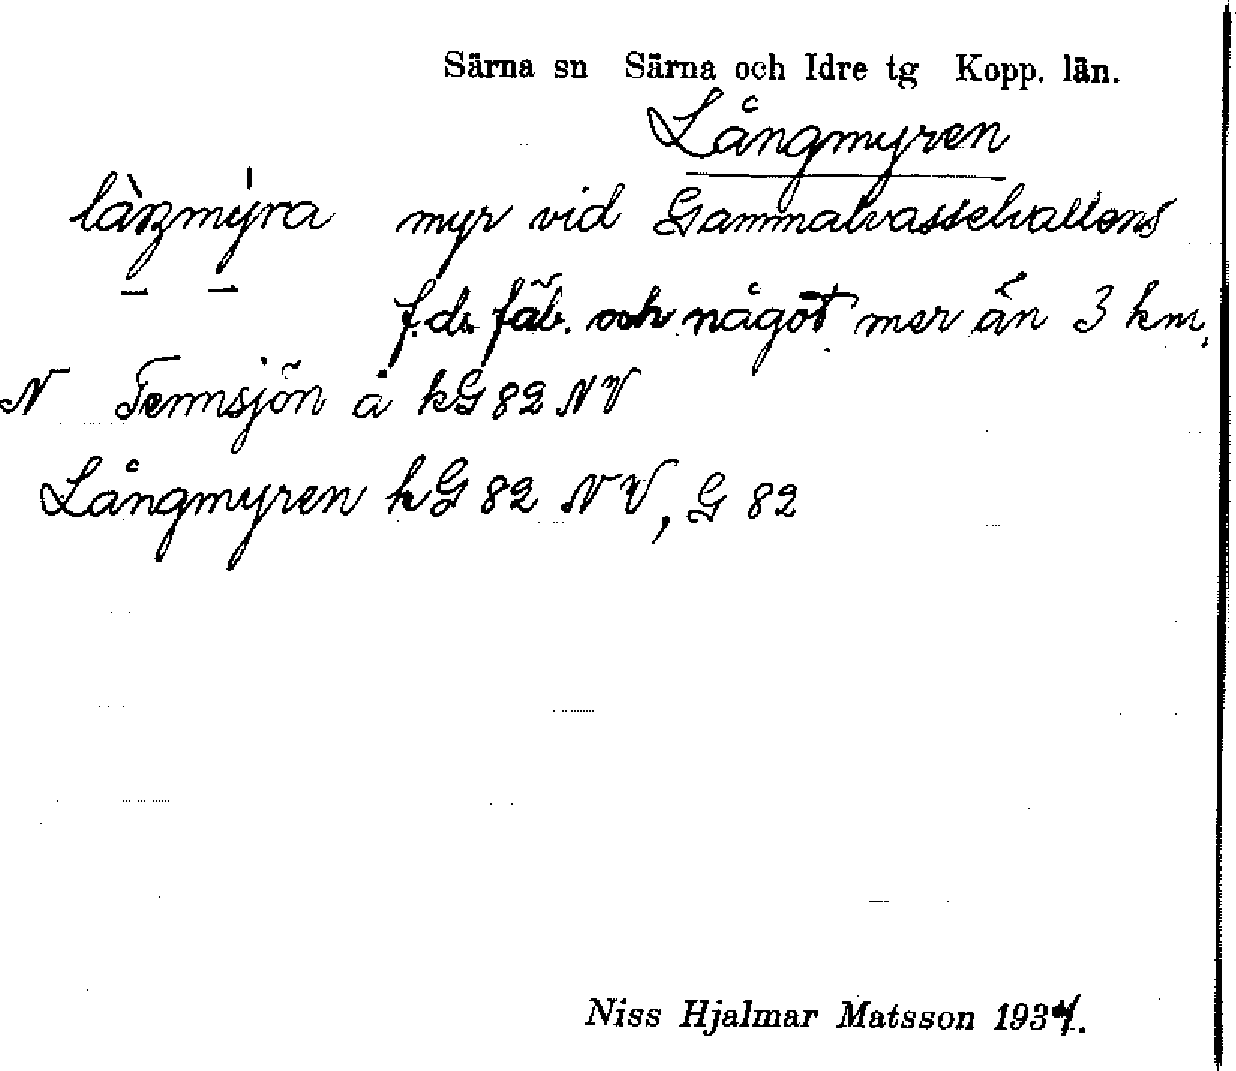 Särna sn Särna och Idre tg Kopp. län.
Långmyren
myr vid Gammalvasselvallens
f.d. fäb. och något mer än 3 km.
N Tennsjön å kG 82 NV
Långmyren kG 82 NV, G 82
Niss Hjalmar Matsson 1934.